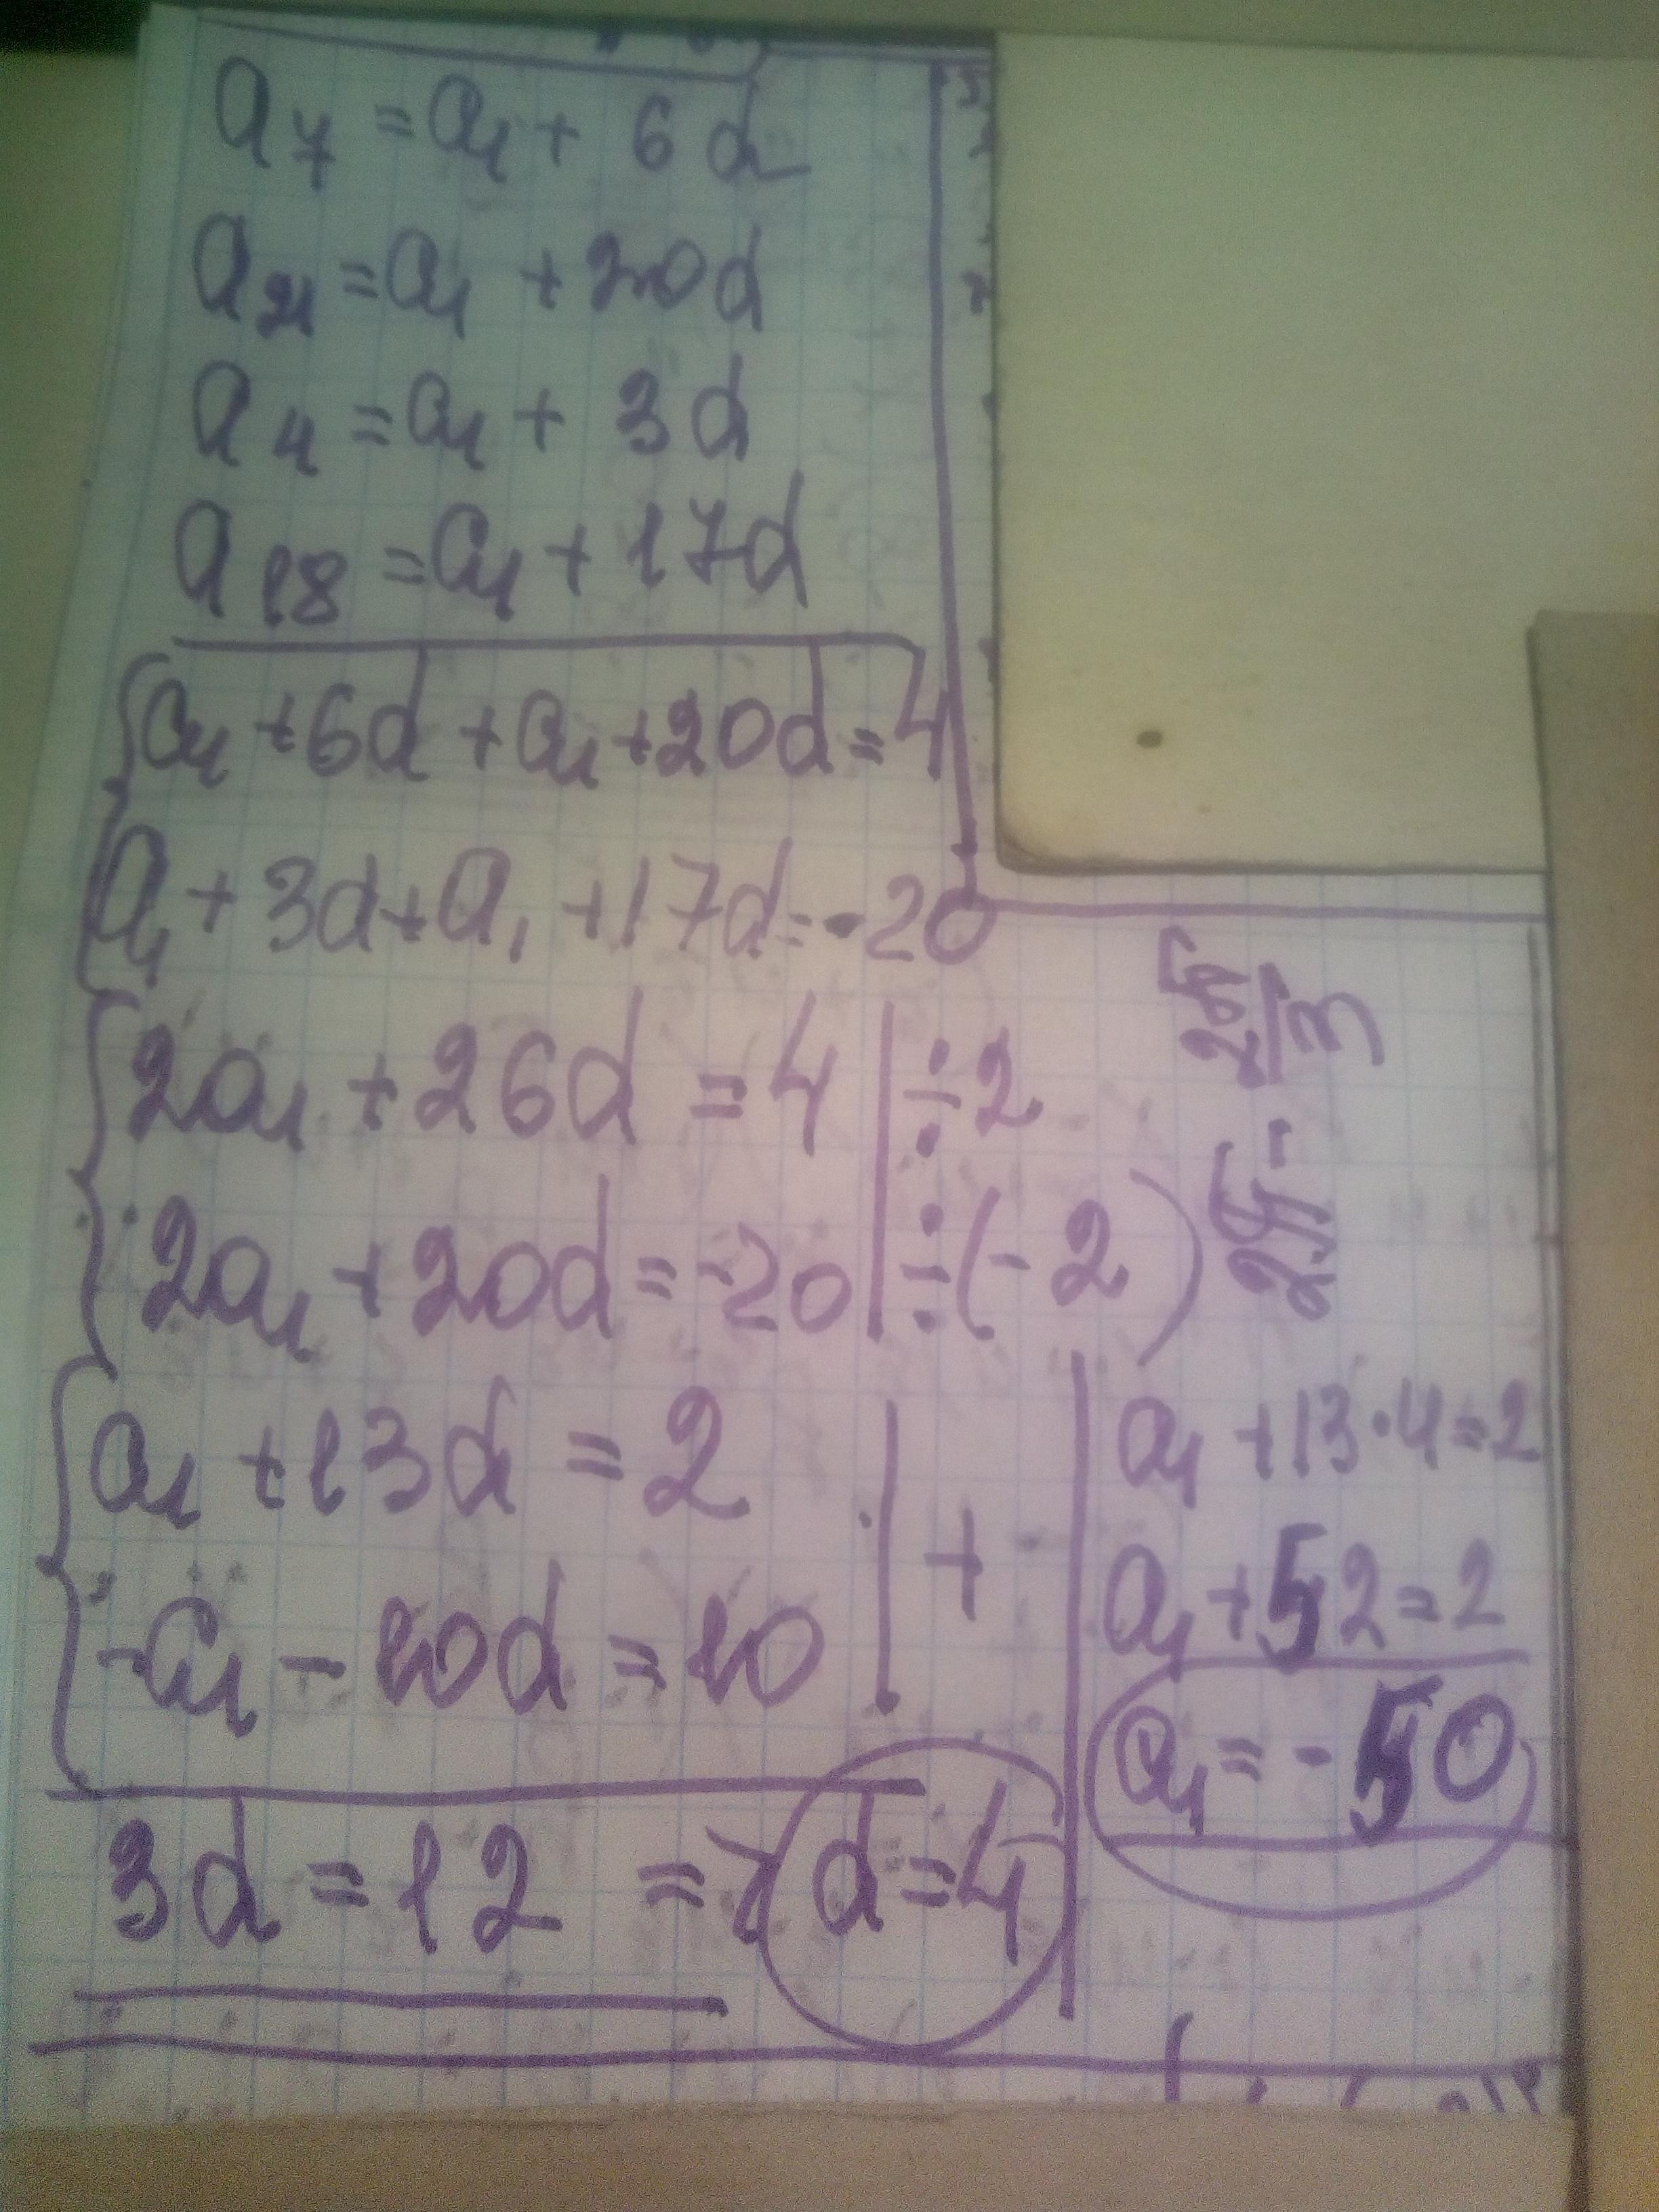 a₇ = a₁ + 6d
a₂₁ = a₁ + 20d
a₄ = a₁ + 3d
a₁₈ = a₁ + 17d
a₁ + 6d + a₁ + 20d = 4
a₁ + 3d + a₁ + 17d = -20
2a₁ + 26d = 4 | ÷ 2
2a₁ + 20d = -20 | ÷ (-2)
a₁ + 13d = 2
+
-a₁ - 10d = 10
3d = 12 => d = 4
a₁ + 13·4 = 2
a₁ + 52 = 2
a₁ = -50